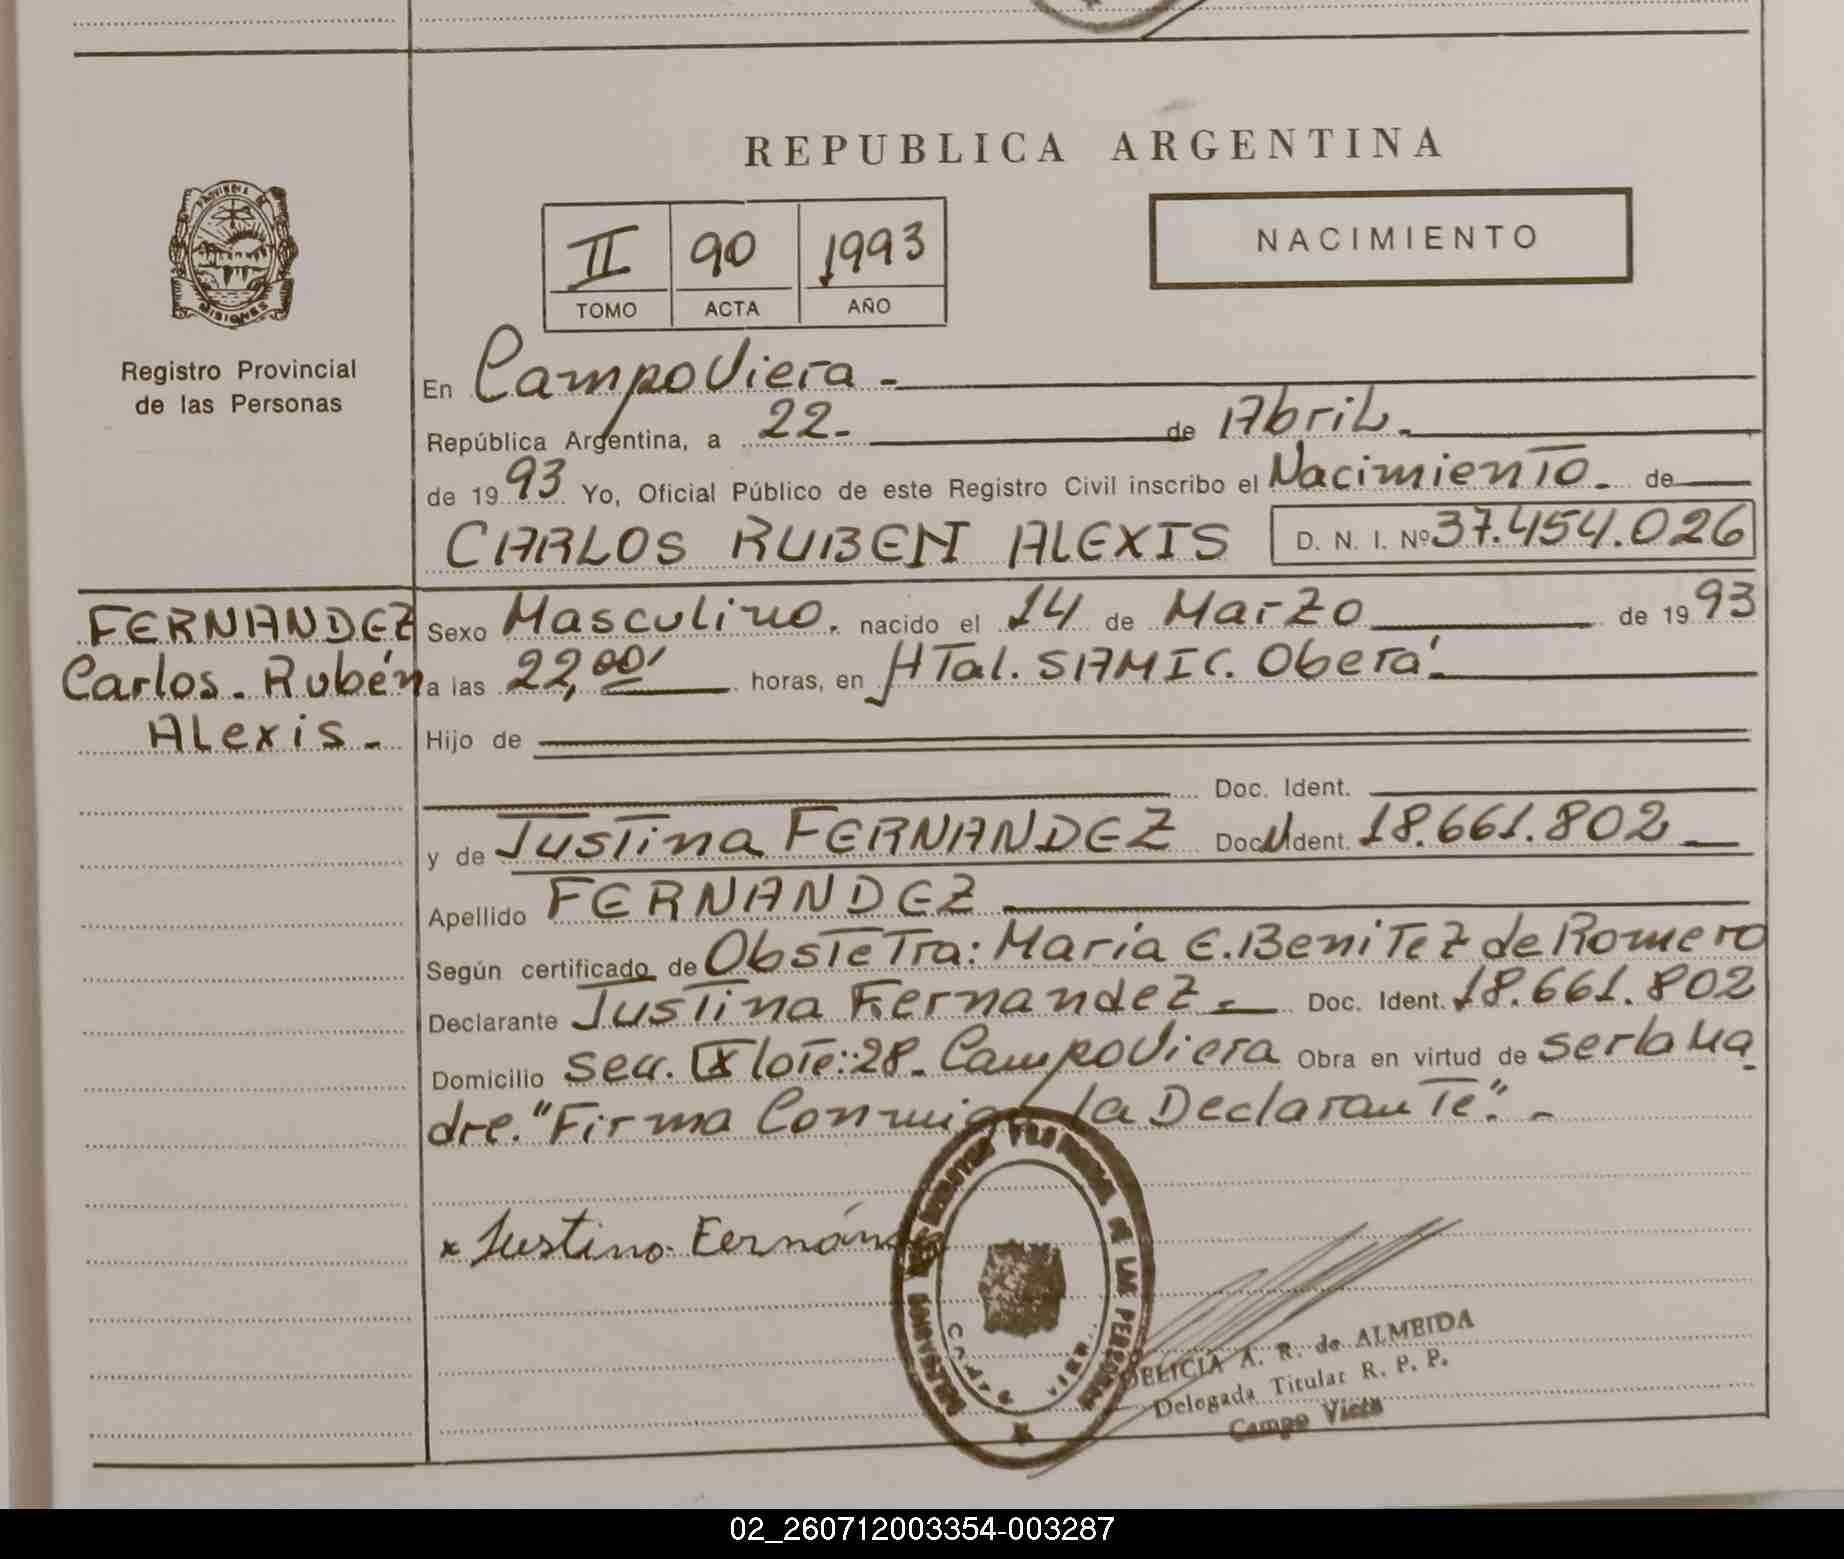 REPUBLICA ARGENTINA
PROVINCIA DE
MISIONES
Registro Provincial
de las Personas
II 90 1993
TOMO ACTA AÑO
NACIMIENTO
En Campo Viera -
República Argentina, a 22- de Abril.
de 1993 Yo, Oficial Público de este Registro Civil inscribo el Nacimiento. de
CARLOS RUBEN ALEXIS D. N. I. Nº 37.454.026
FERNANDEZ
Carlos. Rubén
Alexis.-
Sexo Masculino. nacido el 14 de Marzo de 1993
a las 22,00' horas, en HTal. SAMIC. Oberá.
Hijo de
Doc. Ident.
y de Justina FERNANDEZ Doc. Ident. 18.661.802
Apellido FERNANDEZ
Según certificado de Obstetra: Maria E. Benitez de Romero
Declarante Justina Fernandez.- Doc. Ident. 18.661.802
Domicilio secc. IX lote: 28- Campo Viera Obra en virtud de ser la Ma-
dre. "Firma Conmigo la Declarante".-
x Justina Fernánd
DE LAS PERSONAS
DELICIA A. R. de ALMEIDA
Delegada Titular R. P. P.
Campo Viera
02_260712003354-003287